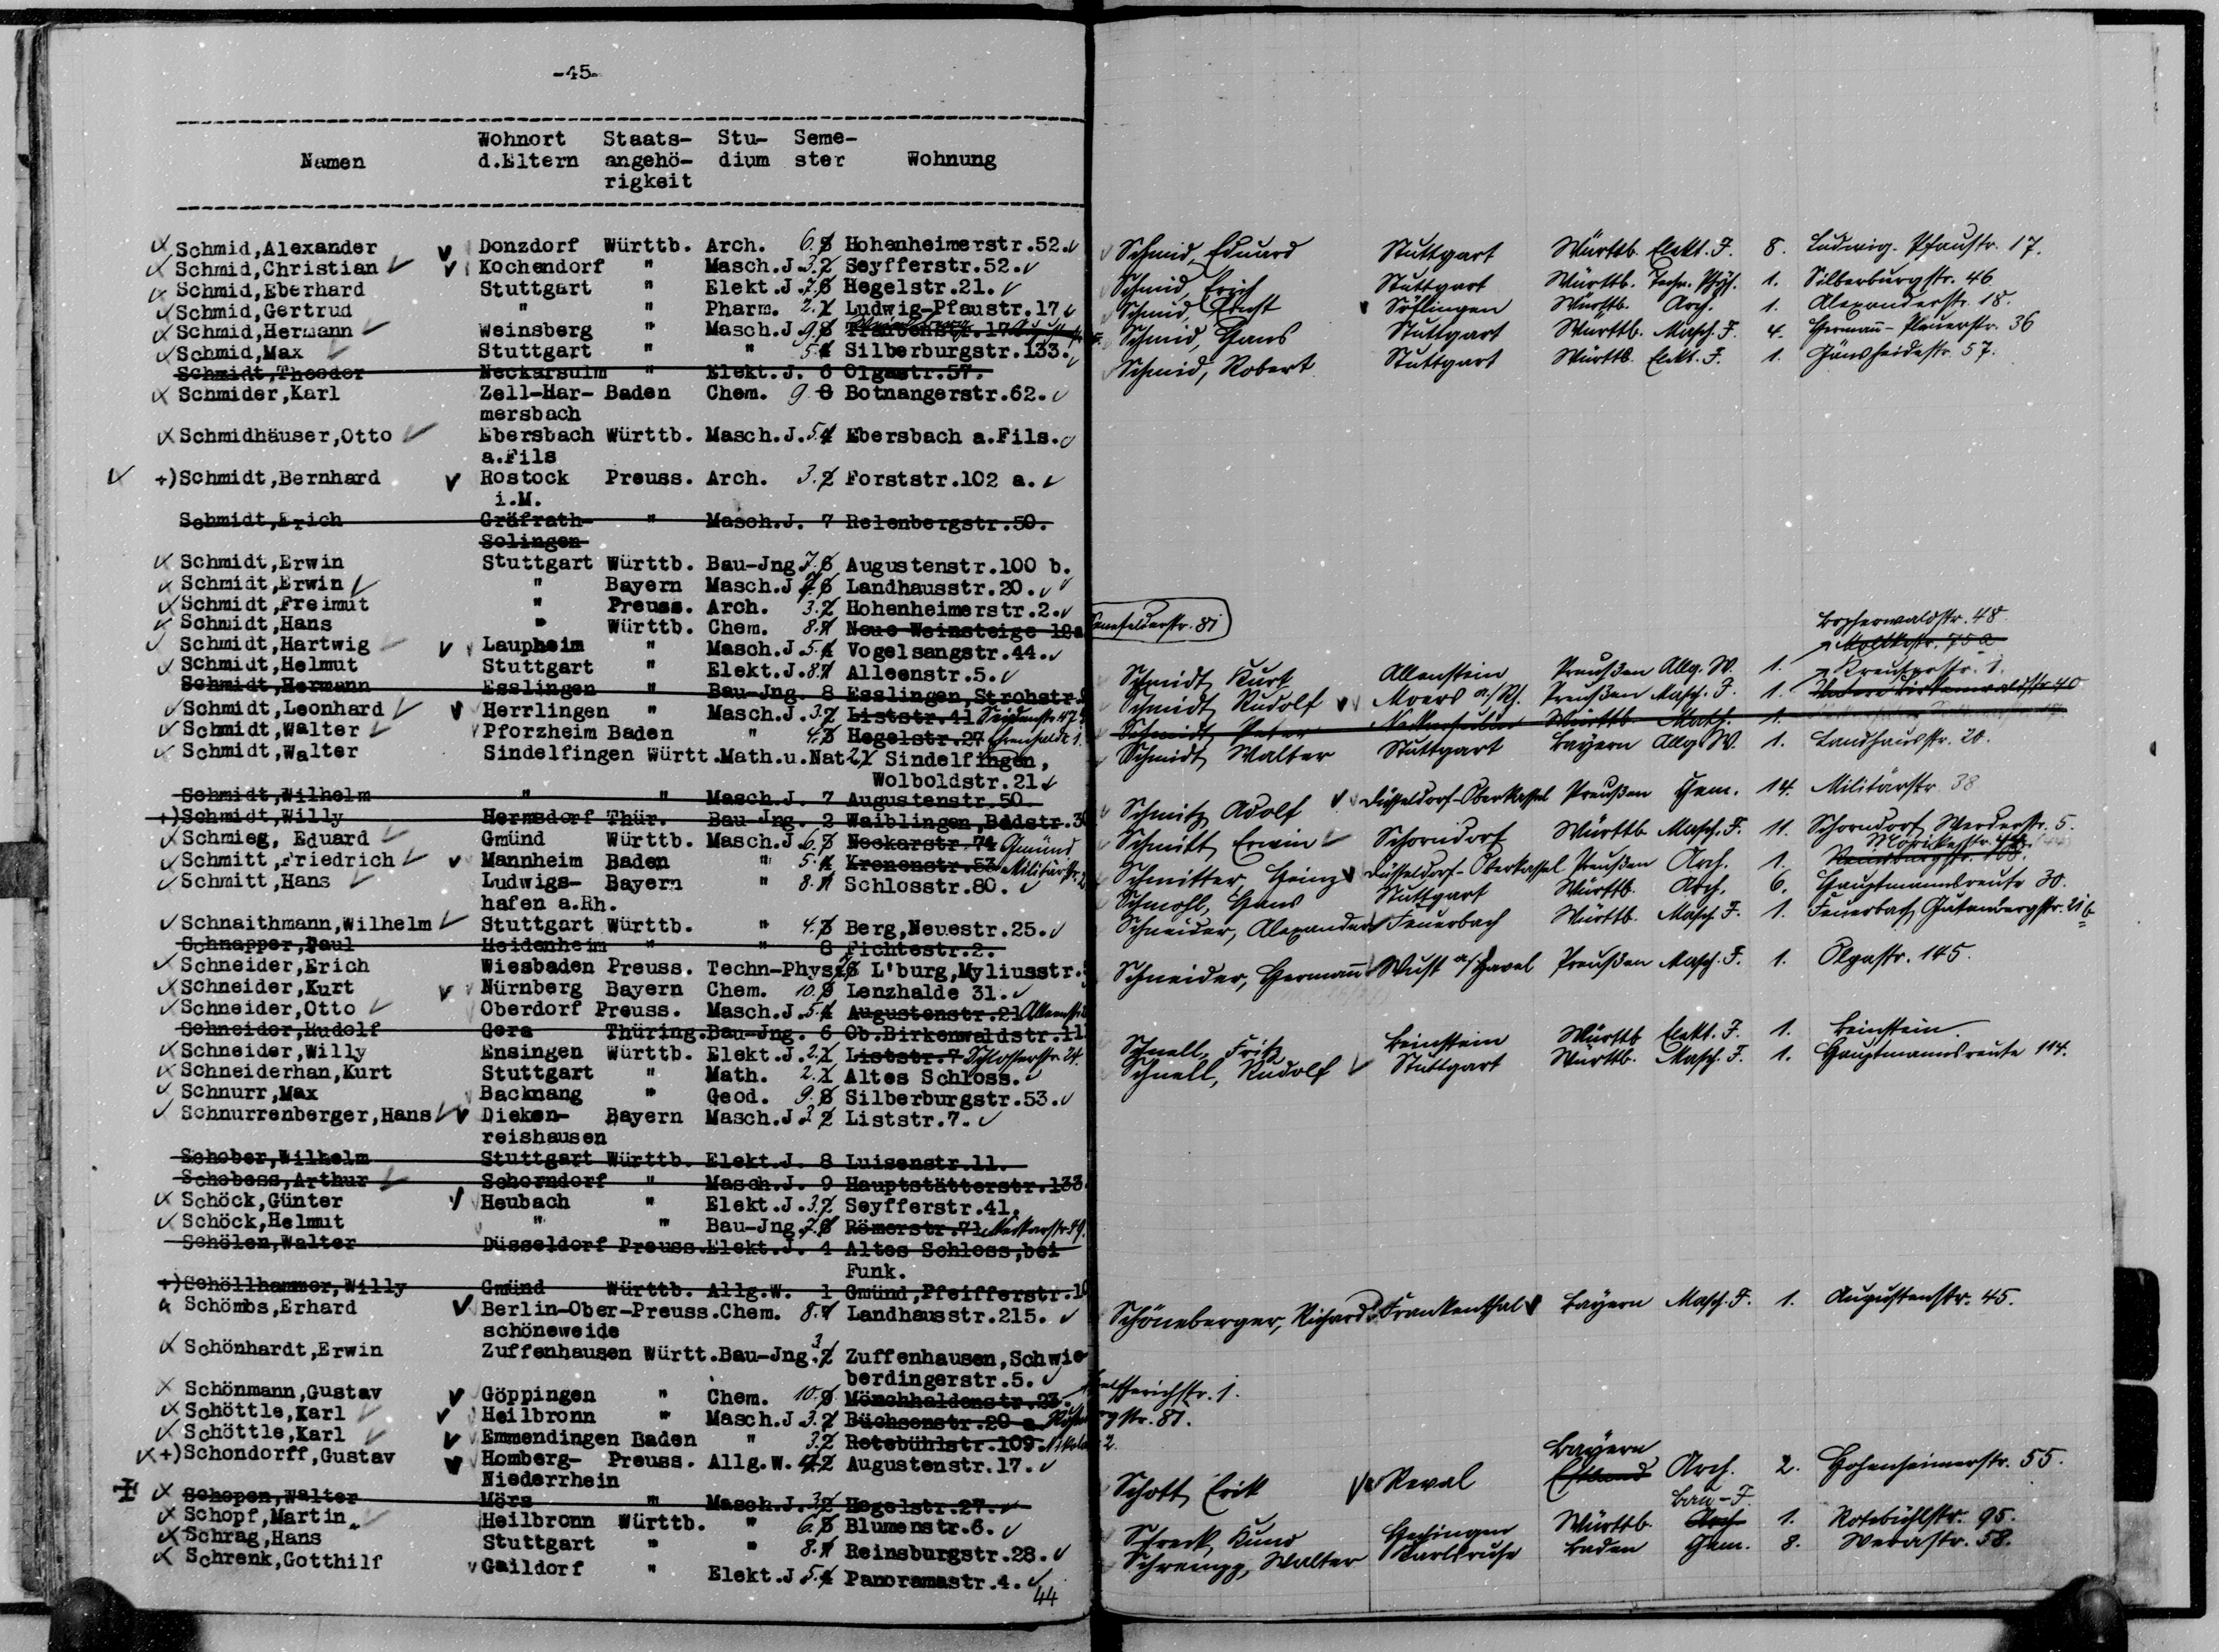 -45-
Wohnort Staats- Stu- Seme-
Namen d.Eltern angehö- dium ster Wohnung
rigkeit
Schmid,Alexander Donzdorf Württb. Arch. 6. 5 Hohenheimerstr.52.
Schmid,Christian Kochendorf " Masch.J. 3. 2 Seyfferstr.52.
Schmid,Eberhard Stuttgart " Elekt.J. 7. 6 Hegelstr.21.
Schmid,Gertrud " " Pharm. 2. 1 Ludwig-Pfaustr.17
Schmid,Hermann Weinsberg " Masch.J. 9. 8 Traubenstr.17
Schmid,Max Stuttgart " " 5. 4 Silberburgstr.133.
Schmidt,Theodor Neckarsulm " Elekt.J. 6 Olgastr.57.
Schmider,Karl Zell-Har- Baden Chem. 9 8 Botnangerstr.62.
mersbach
Schmidhäuser,Otto Ebersbach Württb. Masch.J. 5. 4 Ebersbach a.Fils.
a.Fils
+)Schmidt,Bernhard Rostock Preuss. Arch. 3. 2 Forststr.102 a.
i.M.
Schmidt,Erich Gräfrath- " Masch.J. 7 Relenbergstr.50.
Solingen
Schmidt,Erwin Stuttgart Württb. Bau-Jng 7. 6 Augustenstr.100 b.
Schmidt,Erwin " Bayern Masch.J 7. 6 Landhausstr.20.
Schmidt,Freimut " Preuss. Arch. 3. 2 Hohenheimerstr.2.
Schmidt,Hans " Württb. Chem. 8. 7 Neue Weinsteige 12a Senefelderstr. 81
Schmidt,Hartwig Laupheim " Masch.J. 5. 4 Vogelsangstr.44.
Schmidt,Helmut Stuttgart " Elekt.J. 8. 7 Alleenstr.5.
Schmidt,Hermann Esslingen " Bau-Jng. 8 Esslingen,Strohstr.
Schmidt,Leonhard Herrlingen " Masch.J. 3. 2 Liststr.41
Schmidt,Walter Pforzheim Baden " 4. 3 Hegelstr.27
Schmidt,Walter Sindelfingen Württ.Math.u.Nat 2. 1 Sindelfingen,
Wolboldstr.21
Schmidt,Wilhelm " " Masch.J. 7 Augustenstr.50.
+)Schmidt,Willy Hermsdorf Thür. Bau-Jng. 2 Waiblingen,Bddstr.3
Schmieg, Eduard Gmünd Württb. Masch.J. 6. 5 Neckarstr.74 Gmünd
Schmitt,Friedrich Mannheim Baden " 5. 4 Kronenstr.53 Militärstr.
Schmitt,Hans Ludwigs- Bayern " 8. 7 Schlosstr.80.
hafen a.Rh.
Schnaithmann,Wilhelm Stuttgart Württb. " 4. 3 Berg,Neuestr.25.
Schnapper,Paul Heidenheim " " 8 Fichtestr.2.
Schneider,Erich Wiesbaden Preuss. Techn-Phys. 6 L'burg,Myliusstr.
Schneider,Kurt Nürnberg Bayern Chem. 10. 9 Lenzhalde 31.
Schneider,Otto Oberdorf Preuss. Masch.J. 5. 4 Augustenstr.21
Schneider,Rudolf Gera Thüring.Bau-Jng. 6 Ob.Birkenwaldstr.11
Schneider,Willy Ensingen Württb. Elekt.J. 2. 1 Liststr.7 Schlosserstr. 24.
Schneiderhan,Kurt Stuttgart " Math. 2. 1 Altes Schloss.
Schnurr,Max Backnang " Geod. 9. 8 Silberburgstr.53.
Schnurrenberger,Hans Dieken- Bayern Masch.J. 3 2 Liststr.7.
reishausen
Schober,Wilhelm Stuttgart Württb. Elekt.J. 8 Luisenstr.11.
Schobess,Arthur Schorndorf " Masch.J. 9 Hauptstätterstr.133
Schöck,Günter Heubach " Elekt.J. 3. 2 Seyfferstr.41.
Schöck,Helmut " " Bau-Jng 7. 6 Römerstr.71 Neckarstr. 49.
Schölen,Walter Düsseldorf Preuss.Elekt.J. 4 Altes Schloss,bei
Funk.
+)Schöllhammer,Willy Gmünd Württb. Allg.W. 1 Gmünd,Pfeifferstr.10
Schömbs,Erhard Berlin-Ober-Preuss.Chem. 8. 7 Landhausstr.215.
schöneweide
Schönhardt,Erwin Zuffenhausen Württ.Bau-Jng. 3 2 Zuffenhausen,Schwie
berdingerstr.5.
Schönmann,Gustav Göppingen " Chem. 10. 9 Mönchhaldenstr.23.
Schöttle,Karl Heilbronn " Masch.J 3. 2 Büchsenstr.20 a
Schöttle,Karl Emmendingen Baden " 3. 2 Rotebühlstr.109.
+)Schondorff,Gustav Homberg- Preuss. Allg.W. 2 Augustenstr.17.
Niederrhein
Schopen,Walter Mörs " Masch.J. 3. 2 Hegelstr.27.
Schopf,Martin Heilbronn Württb. " 6. 5 Blumenstr.6.
Schrag,Hans Stuttgart " " 8. 7 Reinsburgstr.28.
Schrenk,Gotthilf Gaildorf " Elekt.J 5. 4 Panoramastr.4.
44
Schmid, Eduard Stuttgart Württb. Elekt. J. 8. Ludwig-Pfaustr. 17.
Schmid, Erich Stuttgart Württb. Techn. Phys. 1. Silberburgstr. 46
Schmid, Ernst Söflingen Württb. Arch. 1. Alexanderstr. 18.
Schmid, Hans Stuttgart Württb. Masch. J. 4. Hermann-Pleuerstr. 36
Schmid, Robert Stuttgart Württb. Elekt. J. 1. Gänsheidestr. 57.
Bopserwaldstr. 48.
Moltkestr. 75a
Schmidt, Kurt Allenstein Preußen Allg. W. 1. Kreuserstr. 1.
Schmidt, Rudolf Moers a./Rh. Preußen Masch. J. 1. Untere Birkenwaldstr. 40
Schmidt, Peter Neckarsulm Württb. Masch. 1.
Schmidt, Walter Stuttgart Bayern Allg. W. 1. Landhausstr. 20.
Schmitz, Adolf Düsseldorf-Oberkassel Preußen Chem. 14. Militärstr. 38
Schmitt, Erwin Schorndorf Württb. Masch. J. 11. Schorndorf, Werderstr. 5.
Schmitter, Heinz Düsseldorf-Oberkassel Preußen Arch. 1. Reinsburgstr.
Schmohl, Hans Stuttgart Württb. Arch. 6. Hauptmannsreute 30.
Schneider, Alexander Feuerbach Württb. Masch. J. 1. Feuerbach, Gutenbergstr. 21b
Schneider, Hermann Wust a/Havel Preußen Masch. J. 1. Olgastr. 145.
Schnell, Fritz Beinstein Württb Elekt. J. 1. Beinstein
Schnell, Rudolf Stuttgart Württb. Masch. J. 1. Hauptmannsreute 114.
Schöneberger, Richard Frankenthal Bayern Masch. J. 1. Augustenstr. 45.
Bayern
Schott, Erik Reval Estland Arch. 2. Hohenheimerstr. 55.
Bau-J.
Schreck, Kuno Hechingen Württb. Arch 1. Rotebühlstr. 95.
Schrempp, Walter Karlsruhe Baden Chem. 8. Werastr. 58.